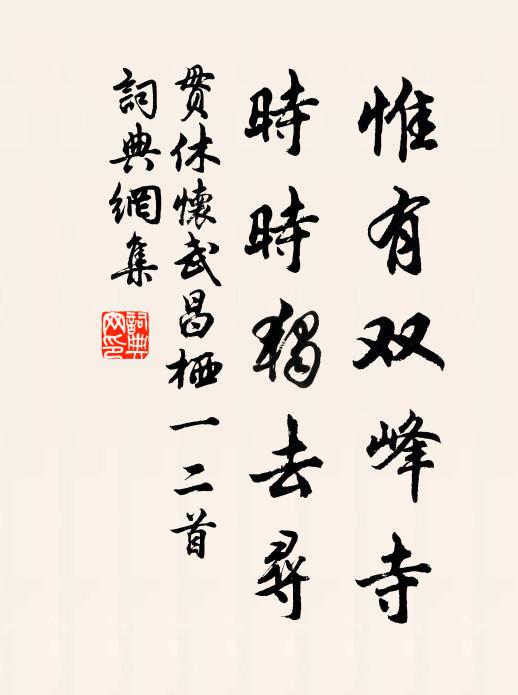 惟有双峰寺
時時獨去尋
贯休懷武昌栖一二首
詞典網集
詞典網印